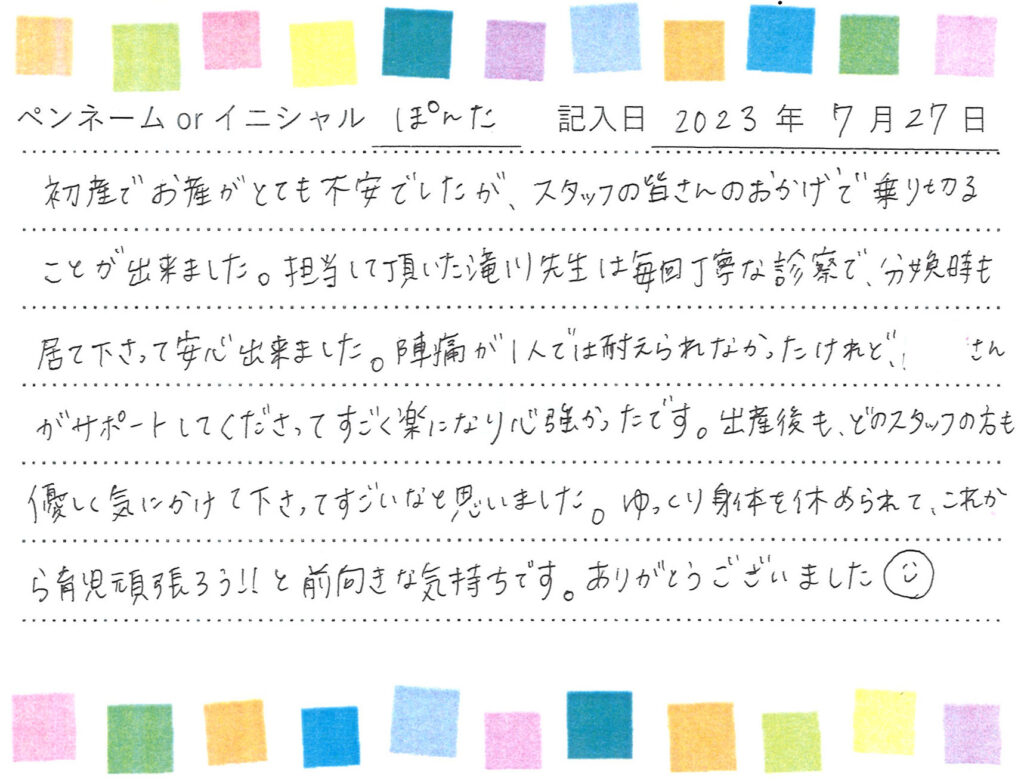 ペンネーム or イニシャル ぽんた 記入日 2023 年 7 月 27 日
初産でお産がとても不安でしたが、スタッフの皆さんのおかげで乗り切る
ことが出来ました。担当して頂いた滝川先生は毎回丁寧な診察で、分娩時も
居て下さって安心出来ました。陣痛が1人では耐えられなかったけれど、 さん
がサポートしてくださってすごく楽になり心強かったです。出産後も、どのスタッフの方も
優しく気にかけて下さってすごいなと思いました。ゆっくり身体を休められて、これか
ら育児頑張ろう!!と前向きな気持ちです。ありがとうございました